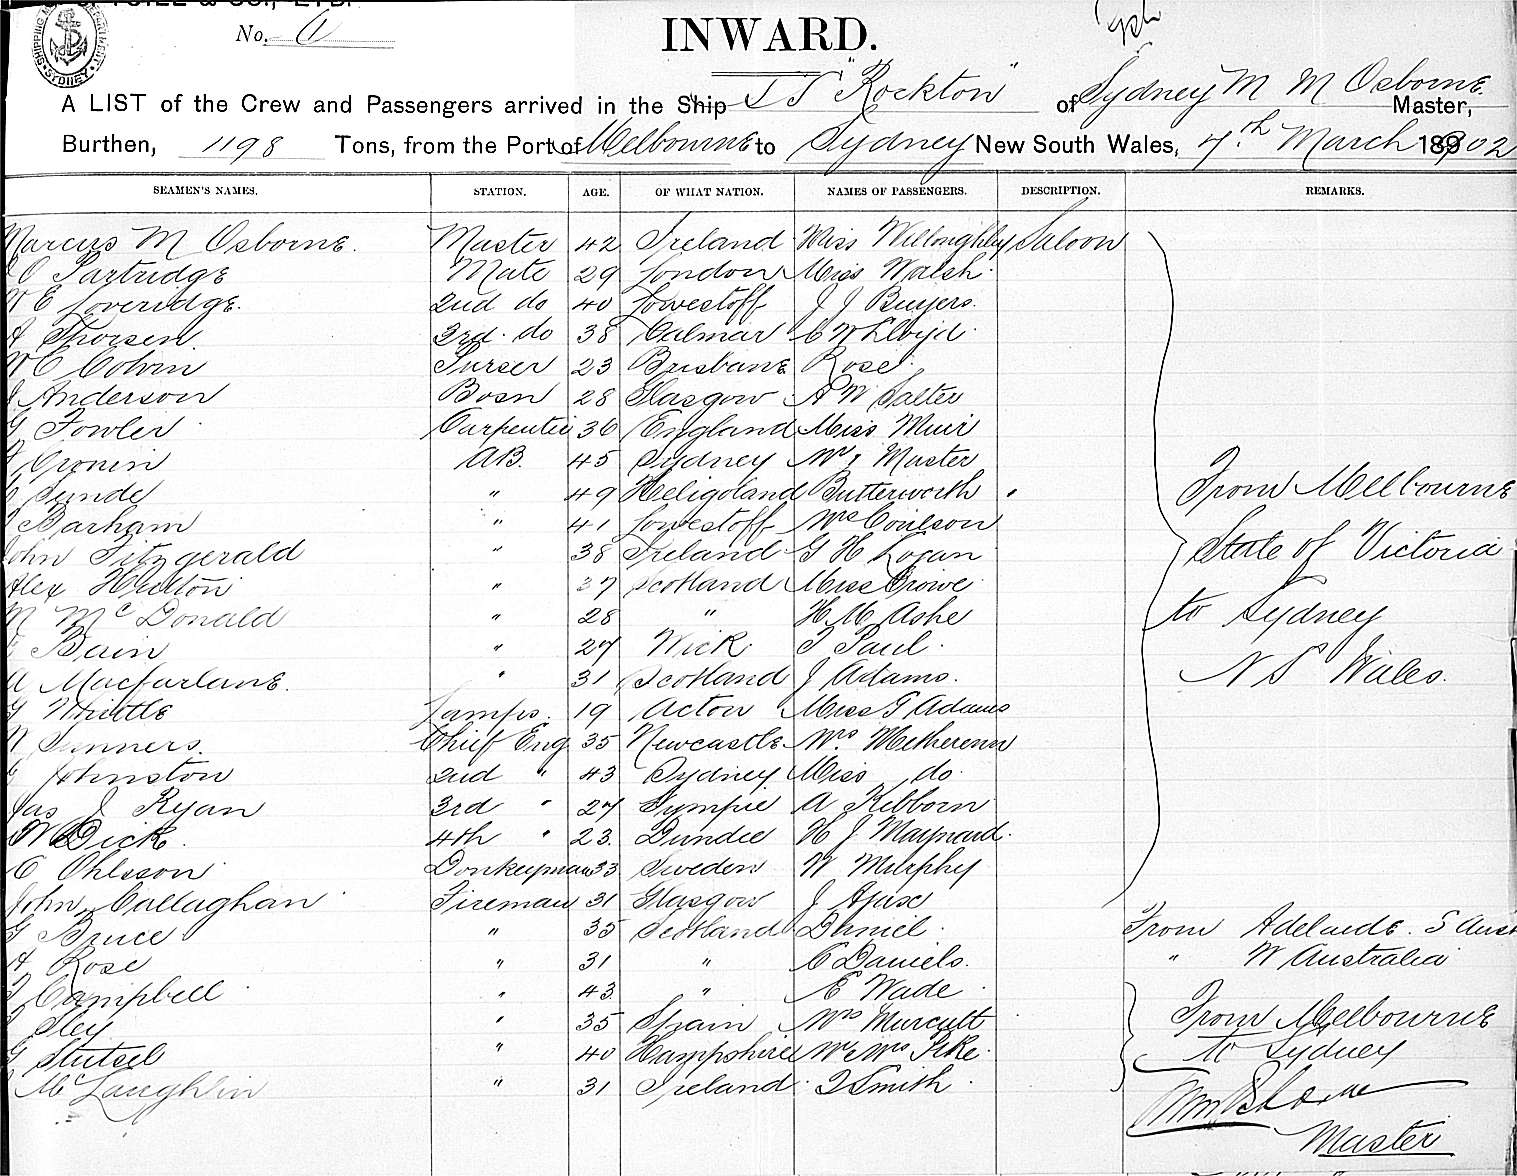 & CO., LTD.
SHIPPING MASTER'S DEPARTMENT SYDNEY
No. 6
INWARD.
A LIST of the Crew and Passengers arrived in the Ship SS "Rockton" of Sydney M M Osborne Master,
Burthen, 1198 Tons, from the Port of Melbourne to Sydney New South Wales, 7th March 1902
SEAMEN'S NAMES. STATION. AGE. OF WHAT NATION. NAMES OF PASSENGERS. DESCRIPTION. REMARKS.
Marcus M Osborne. Master 42 Ireland Miss Willoughby Saloon
Partridge Mate 29 London Miss Walsh
W E Loveridge. 2nd do 40 Lowestoff J J Buyers.
Thorsen. 3rd do 38 Calmar C W Lloyd.
W C Colvin Purser 23 Brisbane Rose.
Anderson Bosn 28 Glasgow A W Salter
G Fowler Carpenter 36 England Miss Muir
Cronin AB. 45 Sydney Master
Sunde " 49 Heligoland Butterworth
Barham " 41 Lowestoff Mrs Coulson
John Fitzgerald " 38 Ireland G H Logan
Alex Hutton " 37 Scotland Miss Crowe
From Melbourne
State of Victoria
to Sydney
N S Wales.
M McDonald " 28 " H M Ashe
Bain " 27 Wick T Paul.
A Macfarlane. " 31 Scotland J Adams.
G Whittle Lamps. 19 Acton Miss G Adams
Sunners. Chief Eng 35 Newcastle Mrs
Johnston 2nd " 43 Sydney Miss do.
Jas J Ryan 3rd " 27 Gympie A Kibborn
W Dick. 4th " 23. Dundee H J Maynard.
C Ohlsson Donkeyman 33 Sweden W Murphy
John Callaghan Fireman 31 Glasgow J Ajax
G Bruce " 35 Scotland Daniel. From Adelaide. S Aust
Rose " 31 " C Daniels. " W Australia
Campbell " 43 " E Wade
Sley " 35 Spain Mrs Murcutt From Melbourne
G Stutsel " 40 Hampshire Mr & Mrs Pike. to Sydney
McLaughlin " 31 Ireland. T Smith
MM Osborne
Master